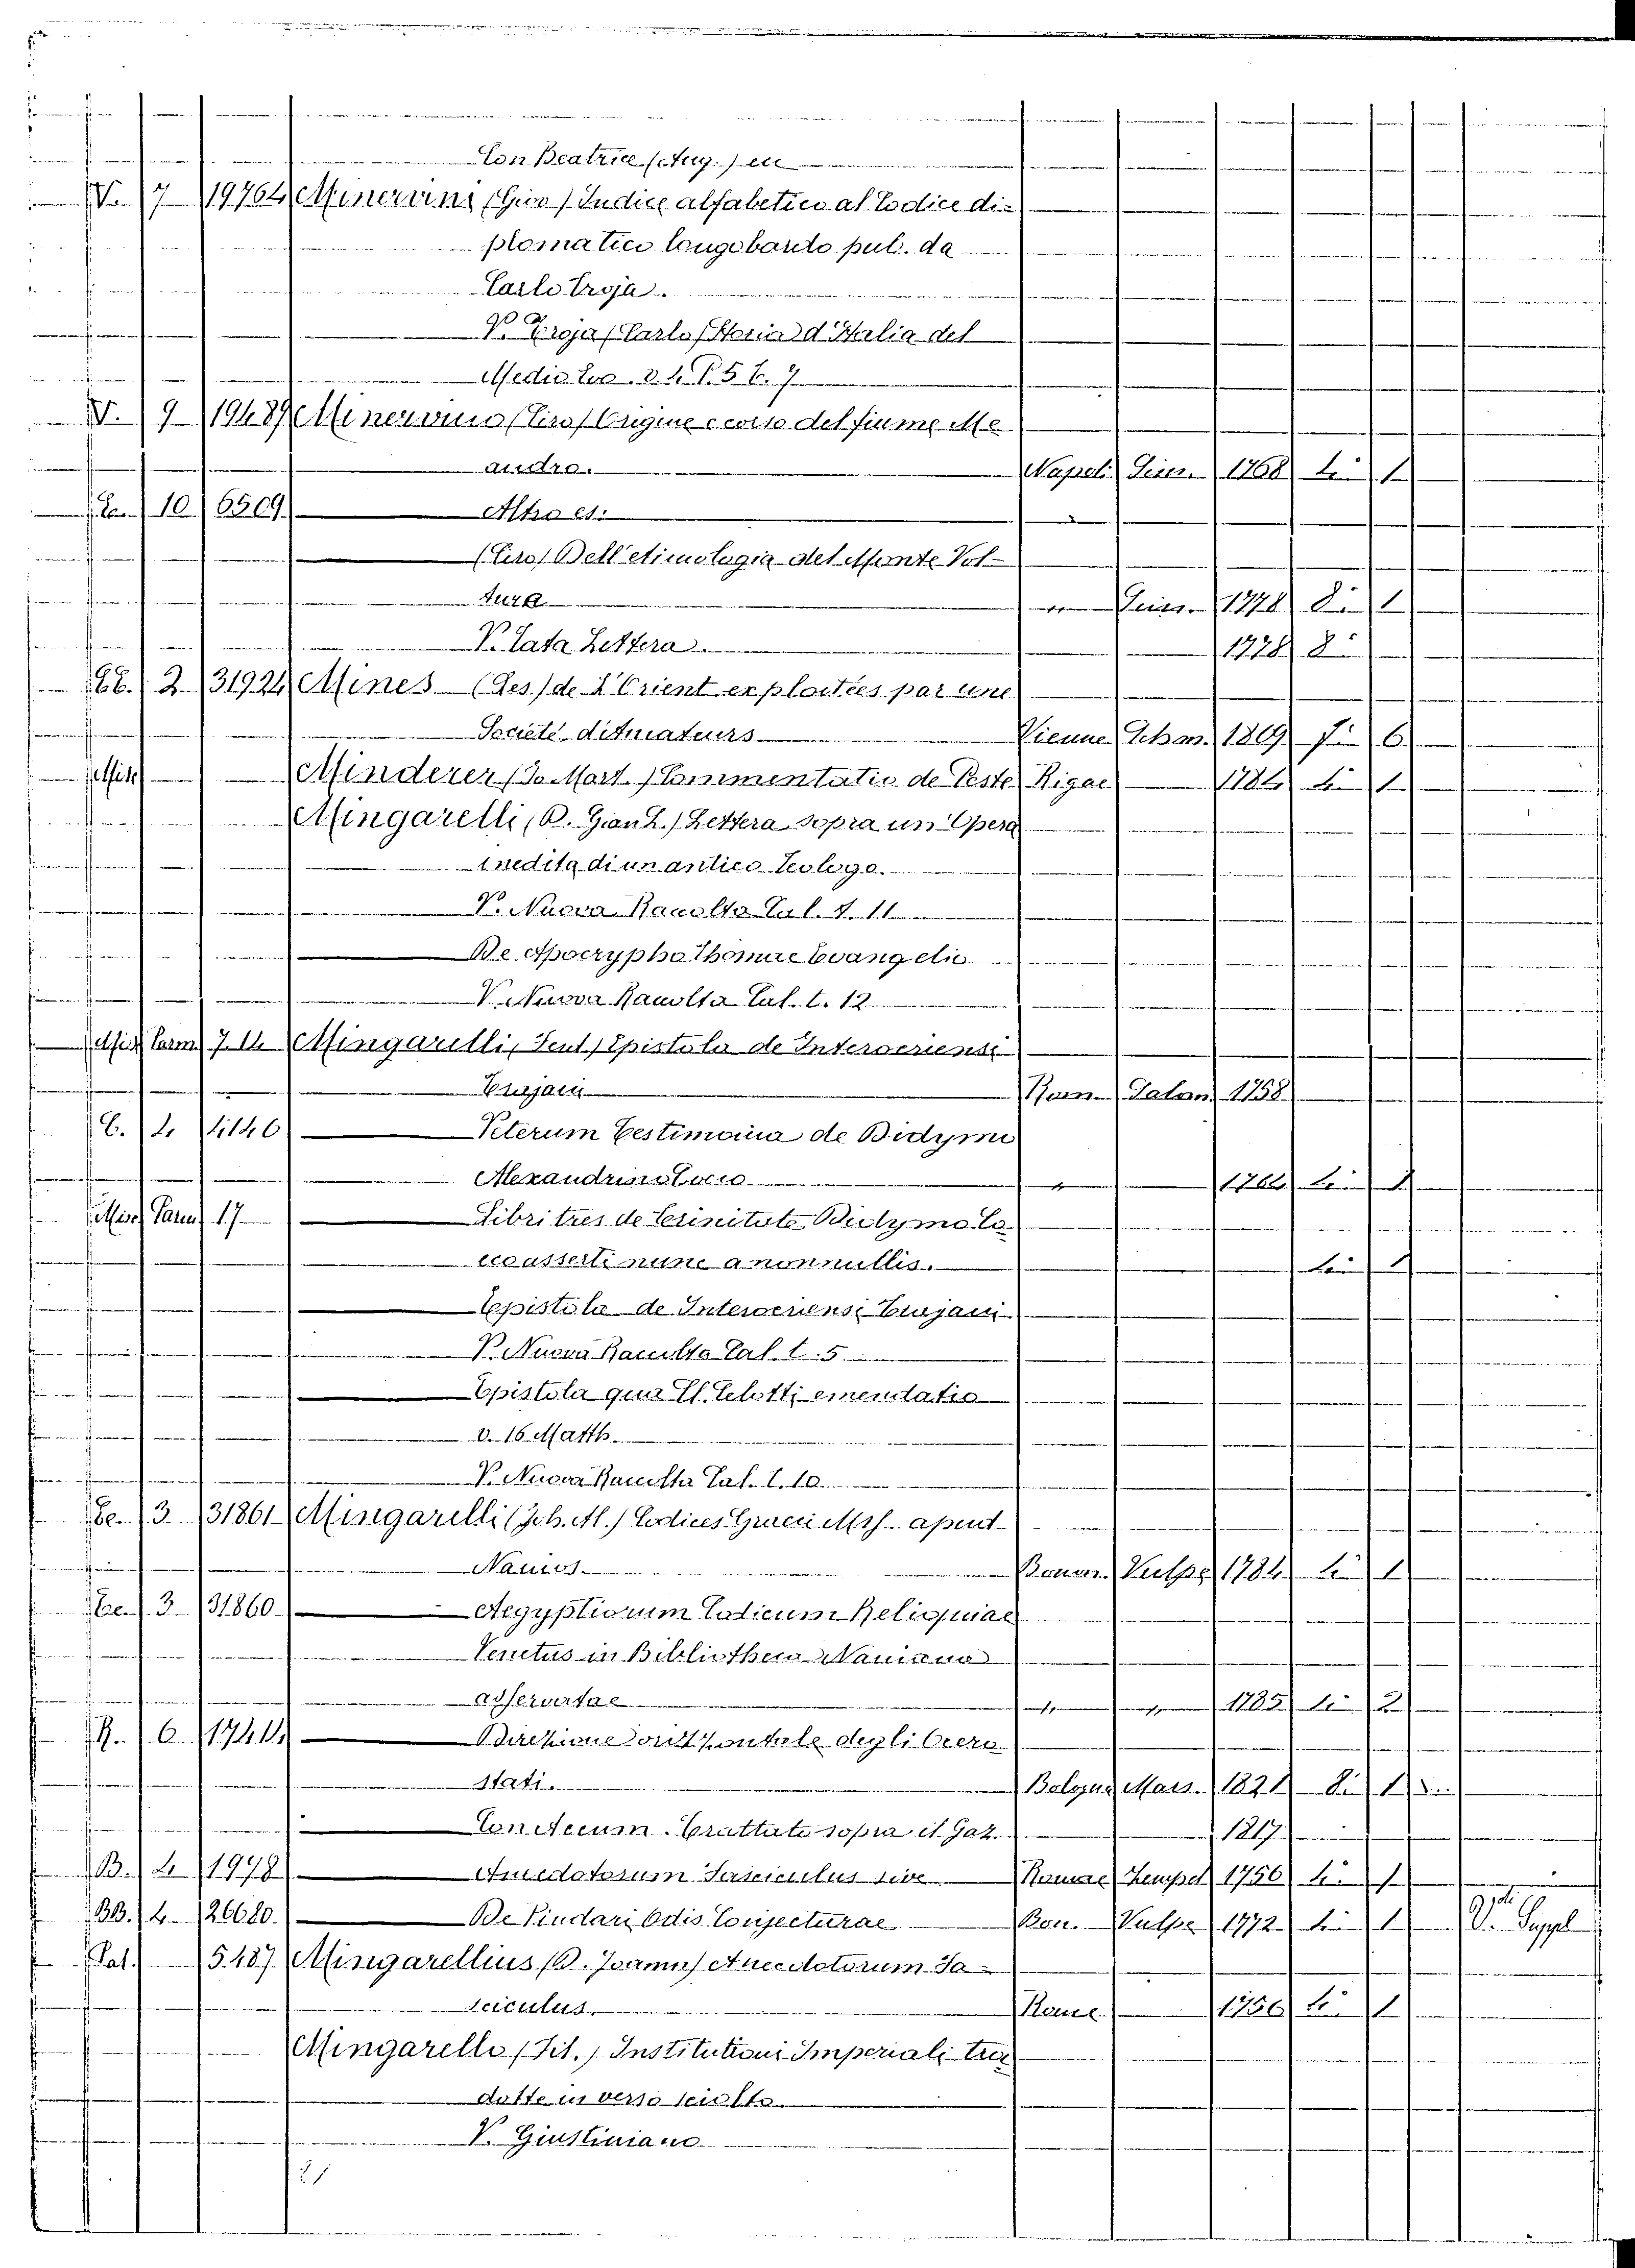 Con Beatrice (Aug.) etc
V. 7 19764 Minervini (Giro) Indice alfabetico al Codice di-
plomatico longobardo pub. da
Carlo Troja.
V. Troja (Carlo) Storia d'Italia del
Medio Evo. v. 4. P. 5 t. 7
V. 9 19489 Minervino (Ciro) Origine e corso del fiume Me
andro. Napoli Simn. 1768 4° 1
10 6509 Altro es:
(Ciro) Dell'etimologia del Monte Vol-
tura " Simn. 1778 8° 1
V. Tata Lettera. 1778 8°
EE. 2 31924 Mines (Les) de l'Orient exploitées par une
Société d'Amateurs Vienne Schm. 1809 f° 6
Misc Minderer (Jo. Mart.) Commentatio de Peste Rigae 1784 4° 1
Mingarelli (D. Gian L.) Lettera sopra un'Opera
inedita di un antico Teologo.
V. Nuova Raccolta Cal. t. 11
De Apocrypho Thomae Evangelio
V. Nuova Raccolta Cal. t. 12
Misc Parm 7.14 Mingarelli, Ferd, Epistola de Interocriensi
Trajani Rom. Salom 1758
C. 4 4146 Veterum Testimonia de Didymi
Alexandrino Coeco " 1764 4° 1
Misc Parm 17 Libri tres de Trinitate Didymo Co
eco asserti nunc a nonnullis. 4° 1
Epistola de Interocriensi Trajani.
V. Nuova Raccolta Cal. t. 5
Epistola qua Cl. Celotti emendatio
v. 16 Matth.
V. Nuova Raccolta Cal. t. 10
3 31861 Mingarelli (Joh. Al.) Codices Graeci Mss. apud
Nanios Bonon. Vulpe 1784 4° 1
3 31860 Aegyptiorum Codicum Reliquiae
Venetus in Bibliotheca Naniana
adservatae " " 1785 4° 2
R. 6 17414 Direzione orizzontale degli Aero
stati. Bologna Mars. 1821 8° 1
Trattato sopra il Gaz. 1817
B. 4 1978 Anecdotorum Fasciculus sive Romae Zempel 1756 4° 1
BB. 4 26680. De Pindari Odis Conjecturae Bon. Vulpe 1772 4° 1 V. Suppl
Pal. 5.487 Mingarellius (D. Joannis) Anecdotorum Fa-
sciculus. Romae 1756 4° 1
Mingarello (Fil.) Institutioni Imperiali tra
dotte in verso sciolto.
V. Giustiniano